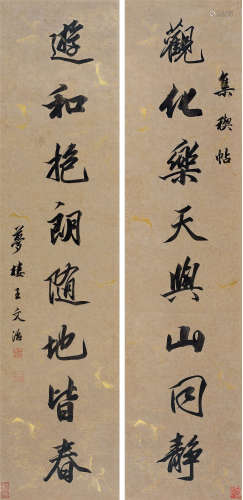 觀化樂天與山同靜
集禊帖
遊和抱朗隨地皆春
夢樓王文治